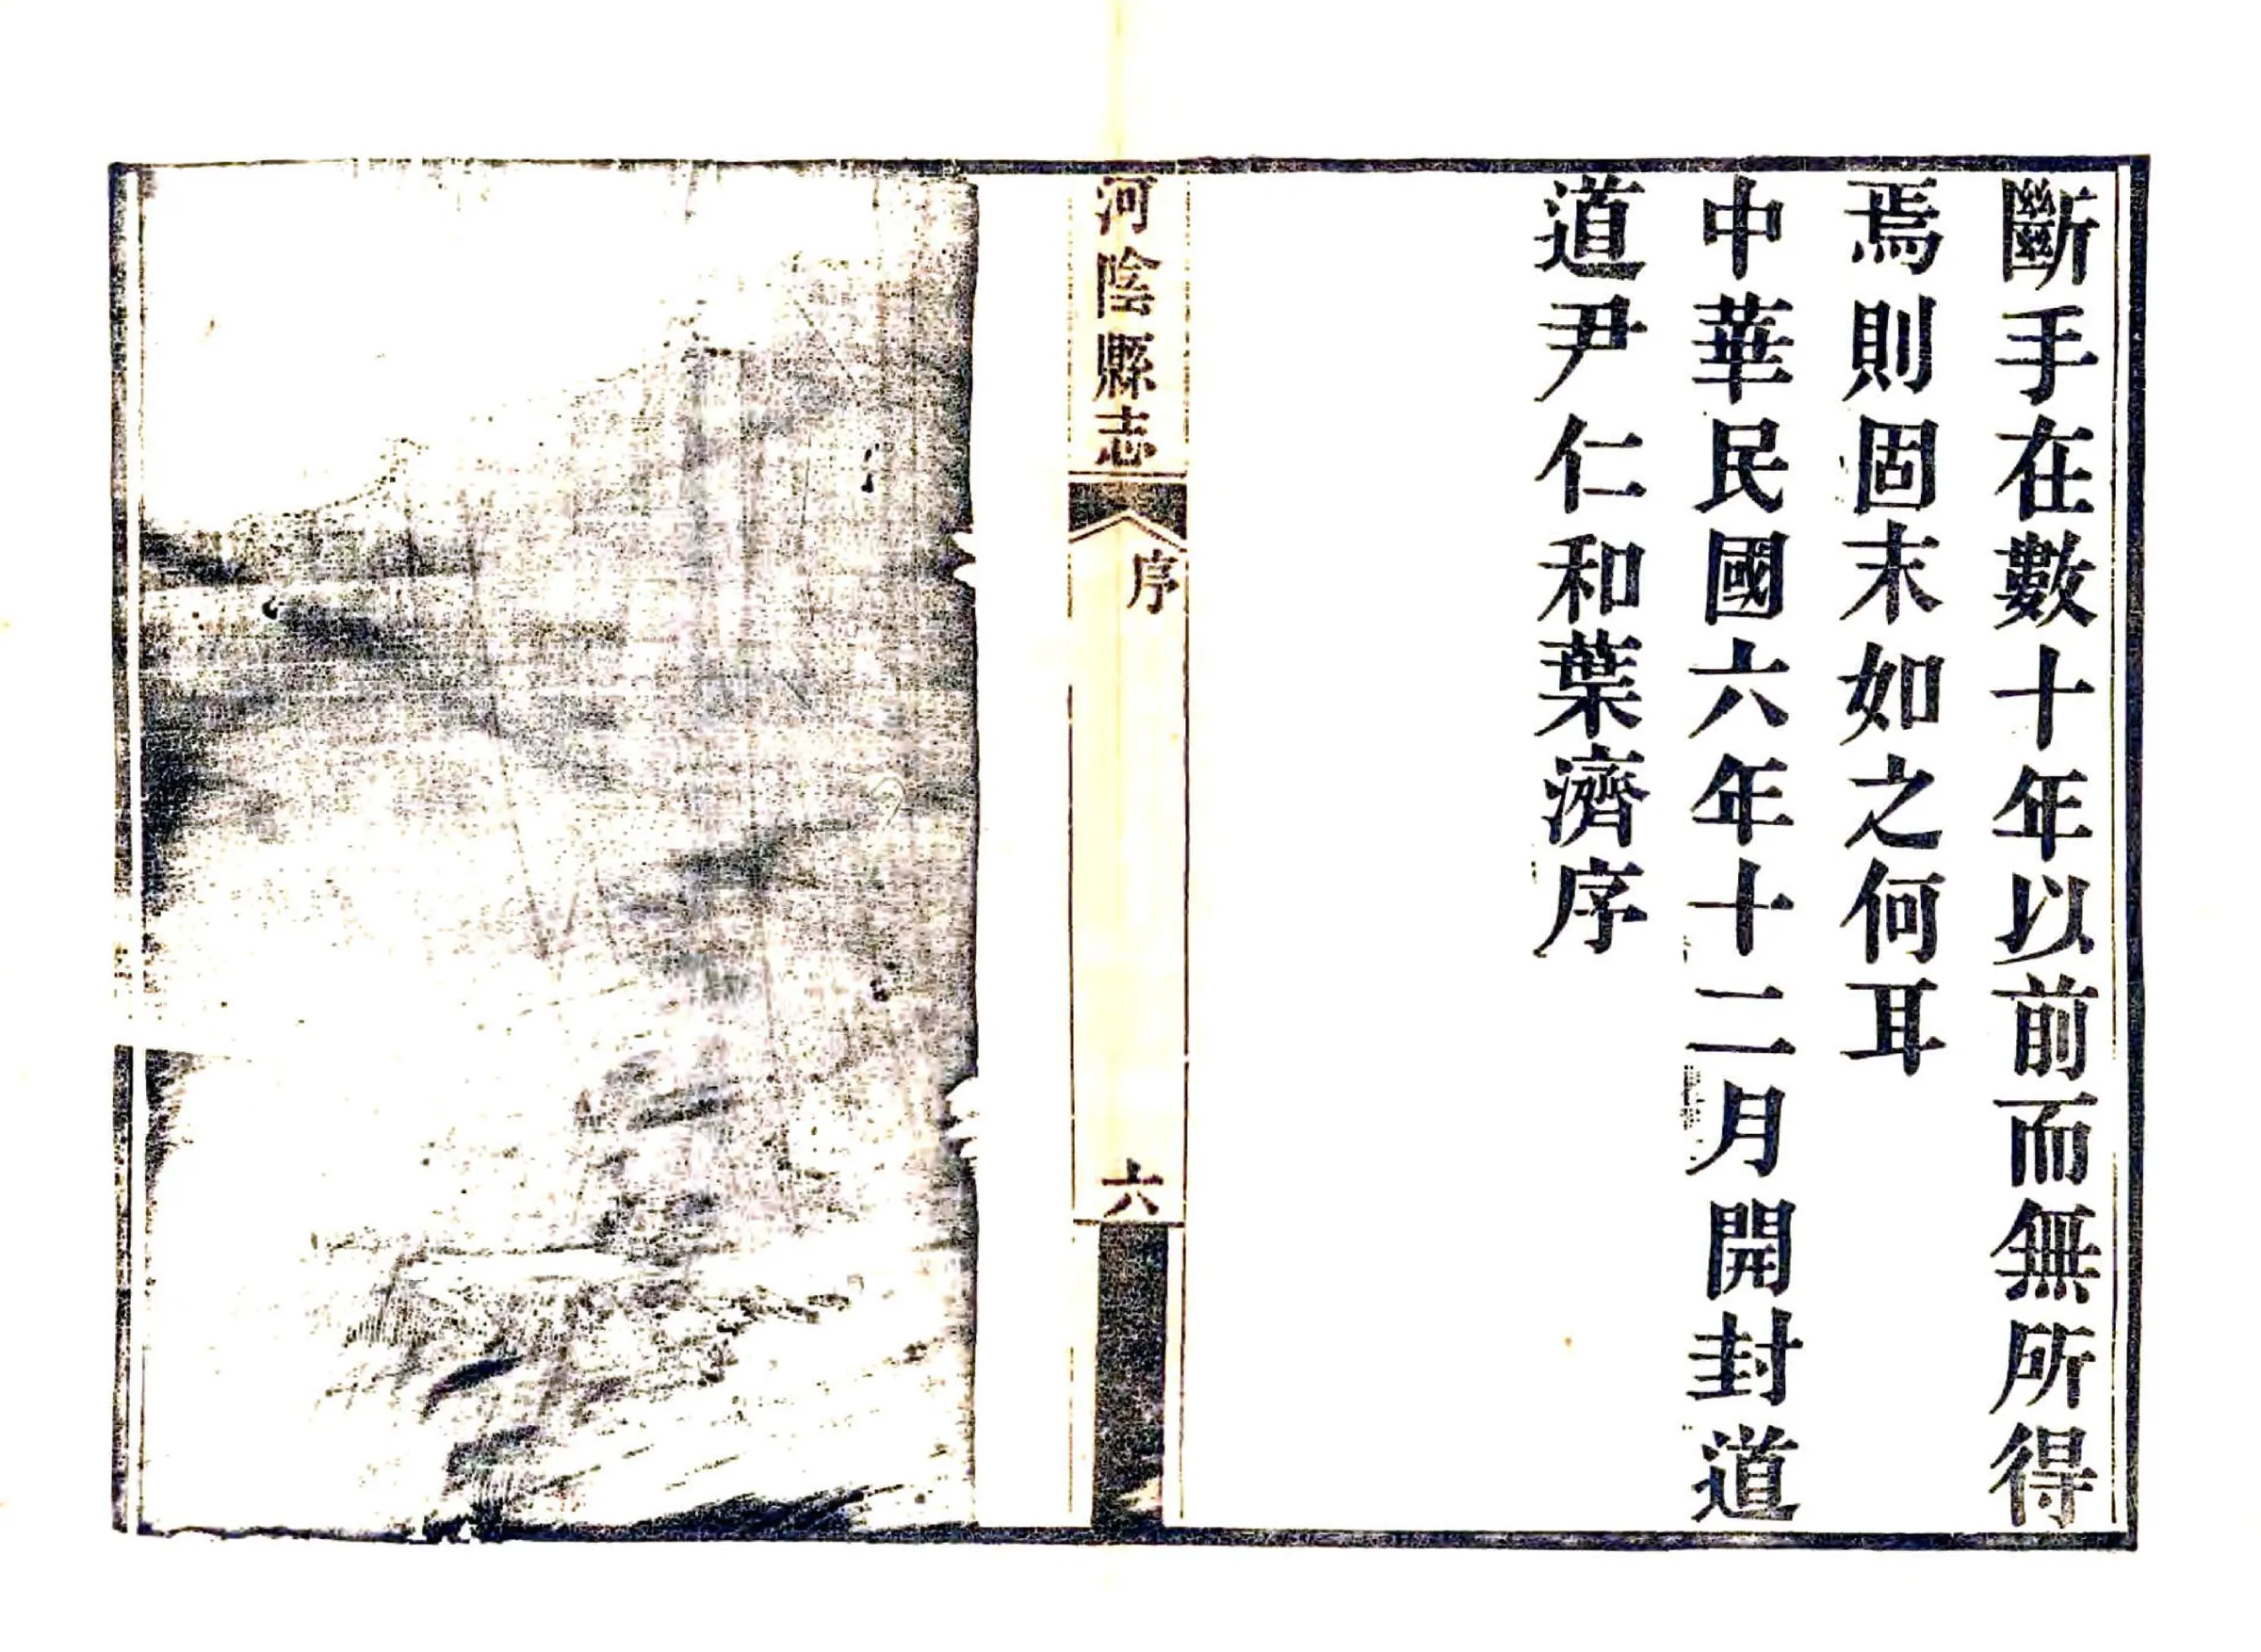 斷手在數十年以前而無所得
焉則固末如之何耳
中華民國六年十二月開封道
道尹仁和葉濟序
河陰縣志
序
六